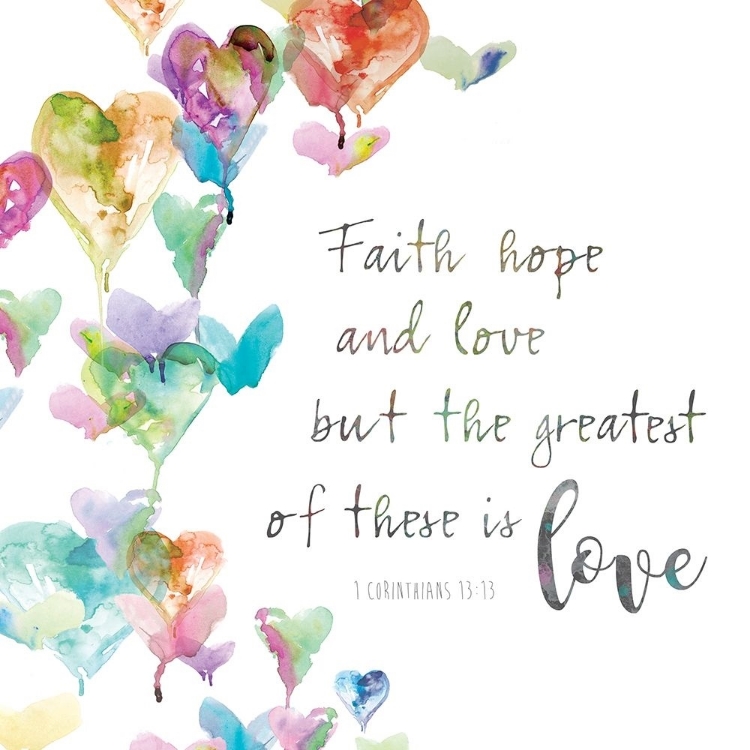 Faith hope
and love
but the greatest
of these is love
1 CORINTHIANS 13:13